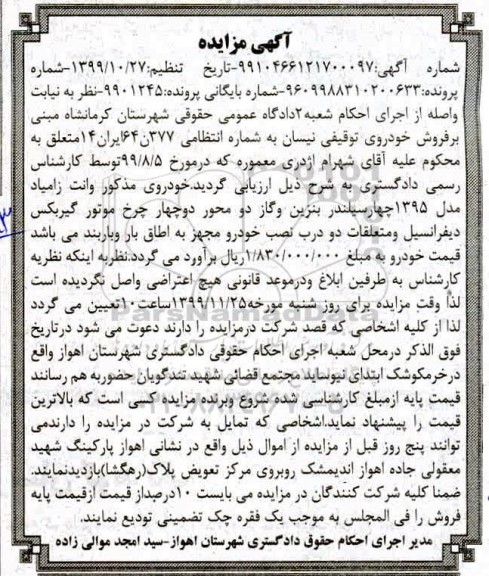 آگهی مزایده
شماره آگهی:۹۹۱۰۴۶۶۱۲۱۷۰۰۰۹۷-تاریخ تنظیم:۱۳۹۹/۱۰/۲۷-شماره
پرونده:۹۶۰۹۹۸۸۳۱۰۲۰۰۶۳۳-شماره بایگانی پرونده:۹۹۰۱۲۴۵-نظر به نیابت
واصله از اجرای احکام شعبه۲دادگاه عمومی حقوقی شهرستان کرمانشاه مبنی
برفروش خودروی توقیفی نیسان به شماره انتظامی ۳۷۷ن۶۴ایران۱۴متعلق به
محکوم علیه آقای شهرام اژدری معموره که درمورخ ۹۹/۸/۵توسط کارشناس
رسمی دادگستری به شرح ذیل ارزیابی گردید.خودروی مذکور وانت زامیاد
مدل ۱۳۹۵چهارسیلندر بنزین وگاز دو محور دوچهار چرخ موتور گیربکس
دیفرانسیل ومتعلقات دو درب نصب خودرو مجهز به اطاق بار وباربند می باشد
قیمت خودرو به مبلغ ۱/۸۳۰/۰۰۰/۰۰۰ریال برآورد می گردد.نظربه اینکه نظریه
کارشناس به طرفین ابلاغ ودرموعد قانونی هیچ اعتراضی واصل نگردیده است
لذا وقت مزایده برای روز شنبه مورخه۱۳۹۹/۱۱/۲۵ساعت۱۰تعیین می گردد
لذا از کلیه اشخاصی که قصد شرکت درمزایده را دارند دعوت می شود درتاریخ
فوق الذکر درمحل شعبه اجرای احکام حقوقی دادگستری شهرستان اهواز واقع
درخرمکوشک ابتدای نیوساید مجتمع قضائی شهید تندگویان حضوربه هم رسانند
قیمت پایه ازمبلغ کارشناسی شده شروع وبرنده مزایده کسی است که بالاترین
قیمت را پیشنهاد نماید.اشخاصی که تمایل به شرکت در مزایده را دارندمی
توانند پنج روز قبل از مزایده از اموال ذیل واقع در نشانی اهواز پارکینگ شهید
معقولی جاده اهواز اندیمشک روبروی مرکز تعویض پلاک(رهگشا)بازدیدنمایند.
ضمنا کلیه شرکت کنندگان در مزایده می بایست ۱۰درصداز قیمت ازقیمت پایه
فروش را فی المجلس به موجب یک فقره چک تضمینی تودیع نمایند.
مدیر اجرای احکام حقوق دادگستری شهرستان اهواز-سید امجد موالی زاده
ParsNamadData